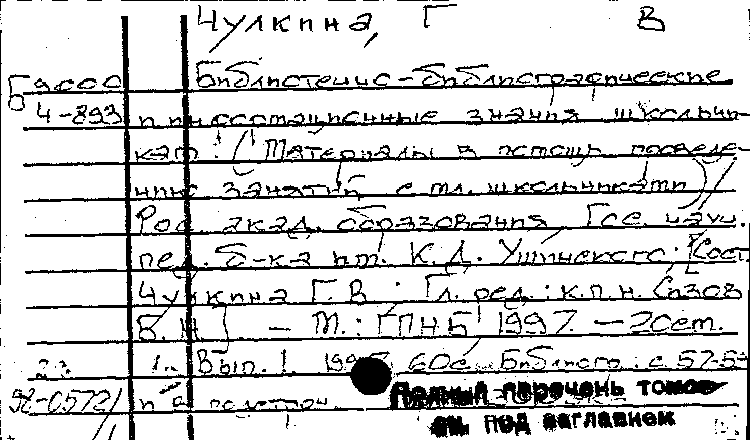 Чулкина, Г В
Б9000 Библиотечно-библиографические
4-893 и информационные знания школьни-
кам: (Материалы в помощь проведе-
нию занятий с мл. школьниками)/
Рос. акад. образования. Гос. науч.
пед. б-ка им. К.Д. Ушинского; Сост.
Чулкина Г.В.; Гл. ред.: к.п.н.
Б.Н. - М.: ГПНБ, 1997. -20см.
23 Вып. 1. 60с. Библиогр.: с.57-59
и подстроч.
Полный перечень томов
см. под заглавием